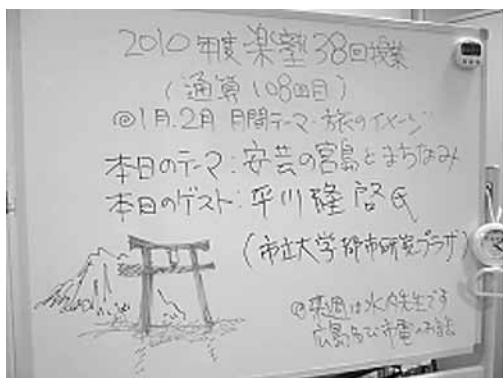 2010年度楽塾38回授業
(通算108回目)
@1月.2月 月間テーマ・旅のイメージ
本日のテーマ:安芸の宮島とまちなみ
本日のゲスト:平川隆啓氏
(市立大学都市研究プラザ)
@来週は水内先生です
広島 市電のお話